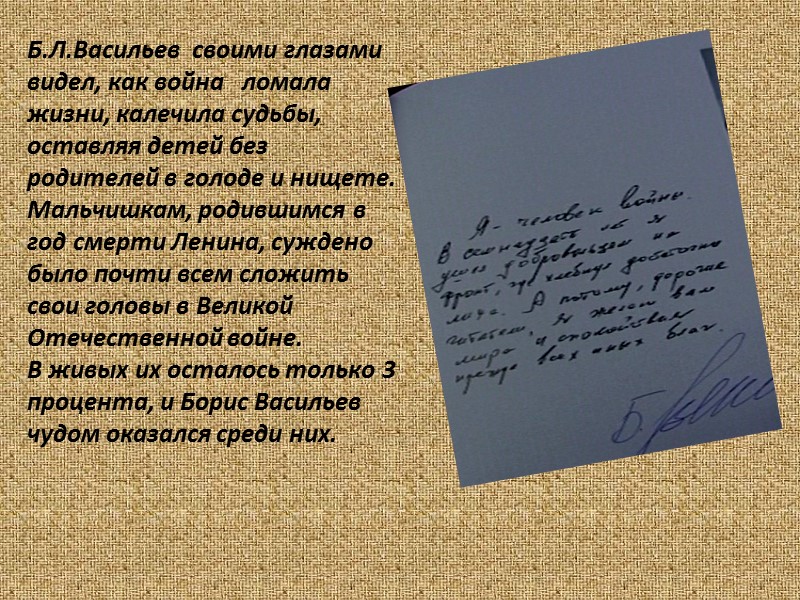 Б.Л.Васильев своими глазами
видел, как война ломала
жизни, калечила судьбы,
оставляя детей без
родителей в голоде и нищете.
Мальчишкам, родившимся в
год смерти Ленина, суждено
было почти всем сложить
свои головы в Великой
Отечественной войне.
В живых их осталось только 3
процента, и Борис Васильев
чудом оказался среди них.
Я - человек войны.
В семнадцать лет я
ушел добровольцем на
фронт, где хлебнул достаточно
лиха. А потому, дорогие
читатели, я желаю вам
мира и спокойствия
прежде всех иных благ.
Б.